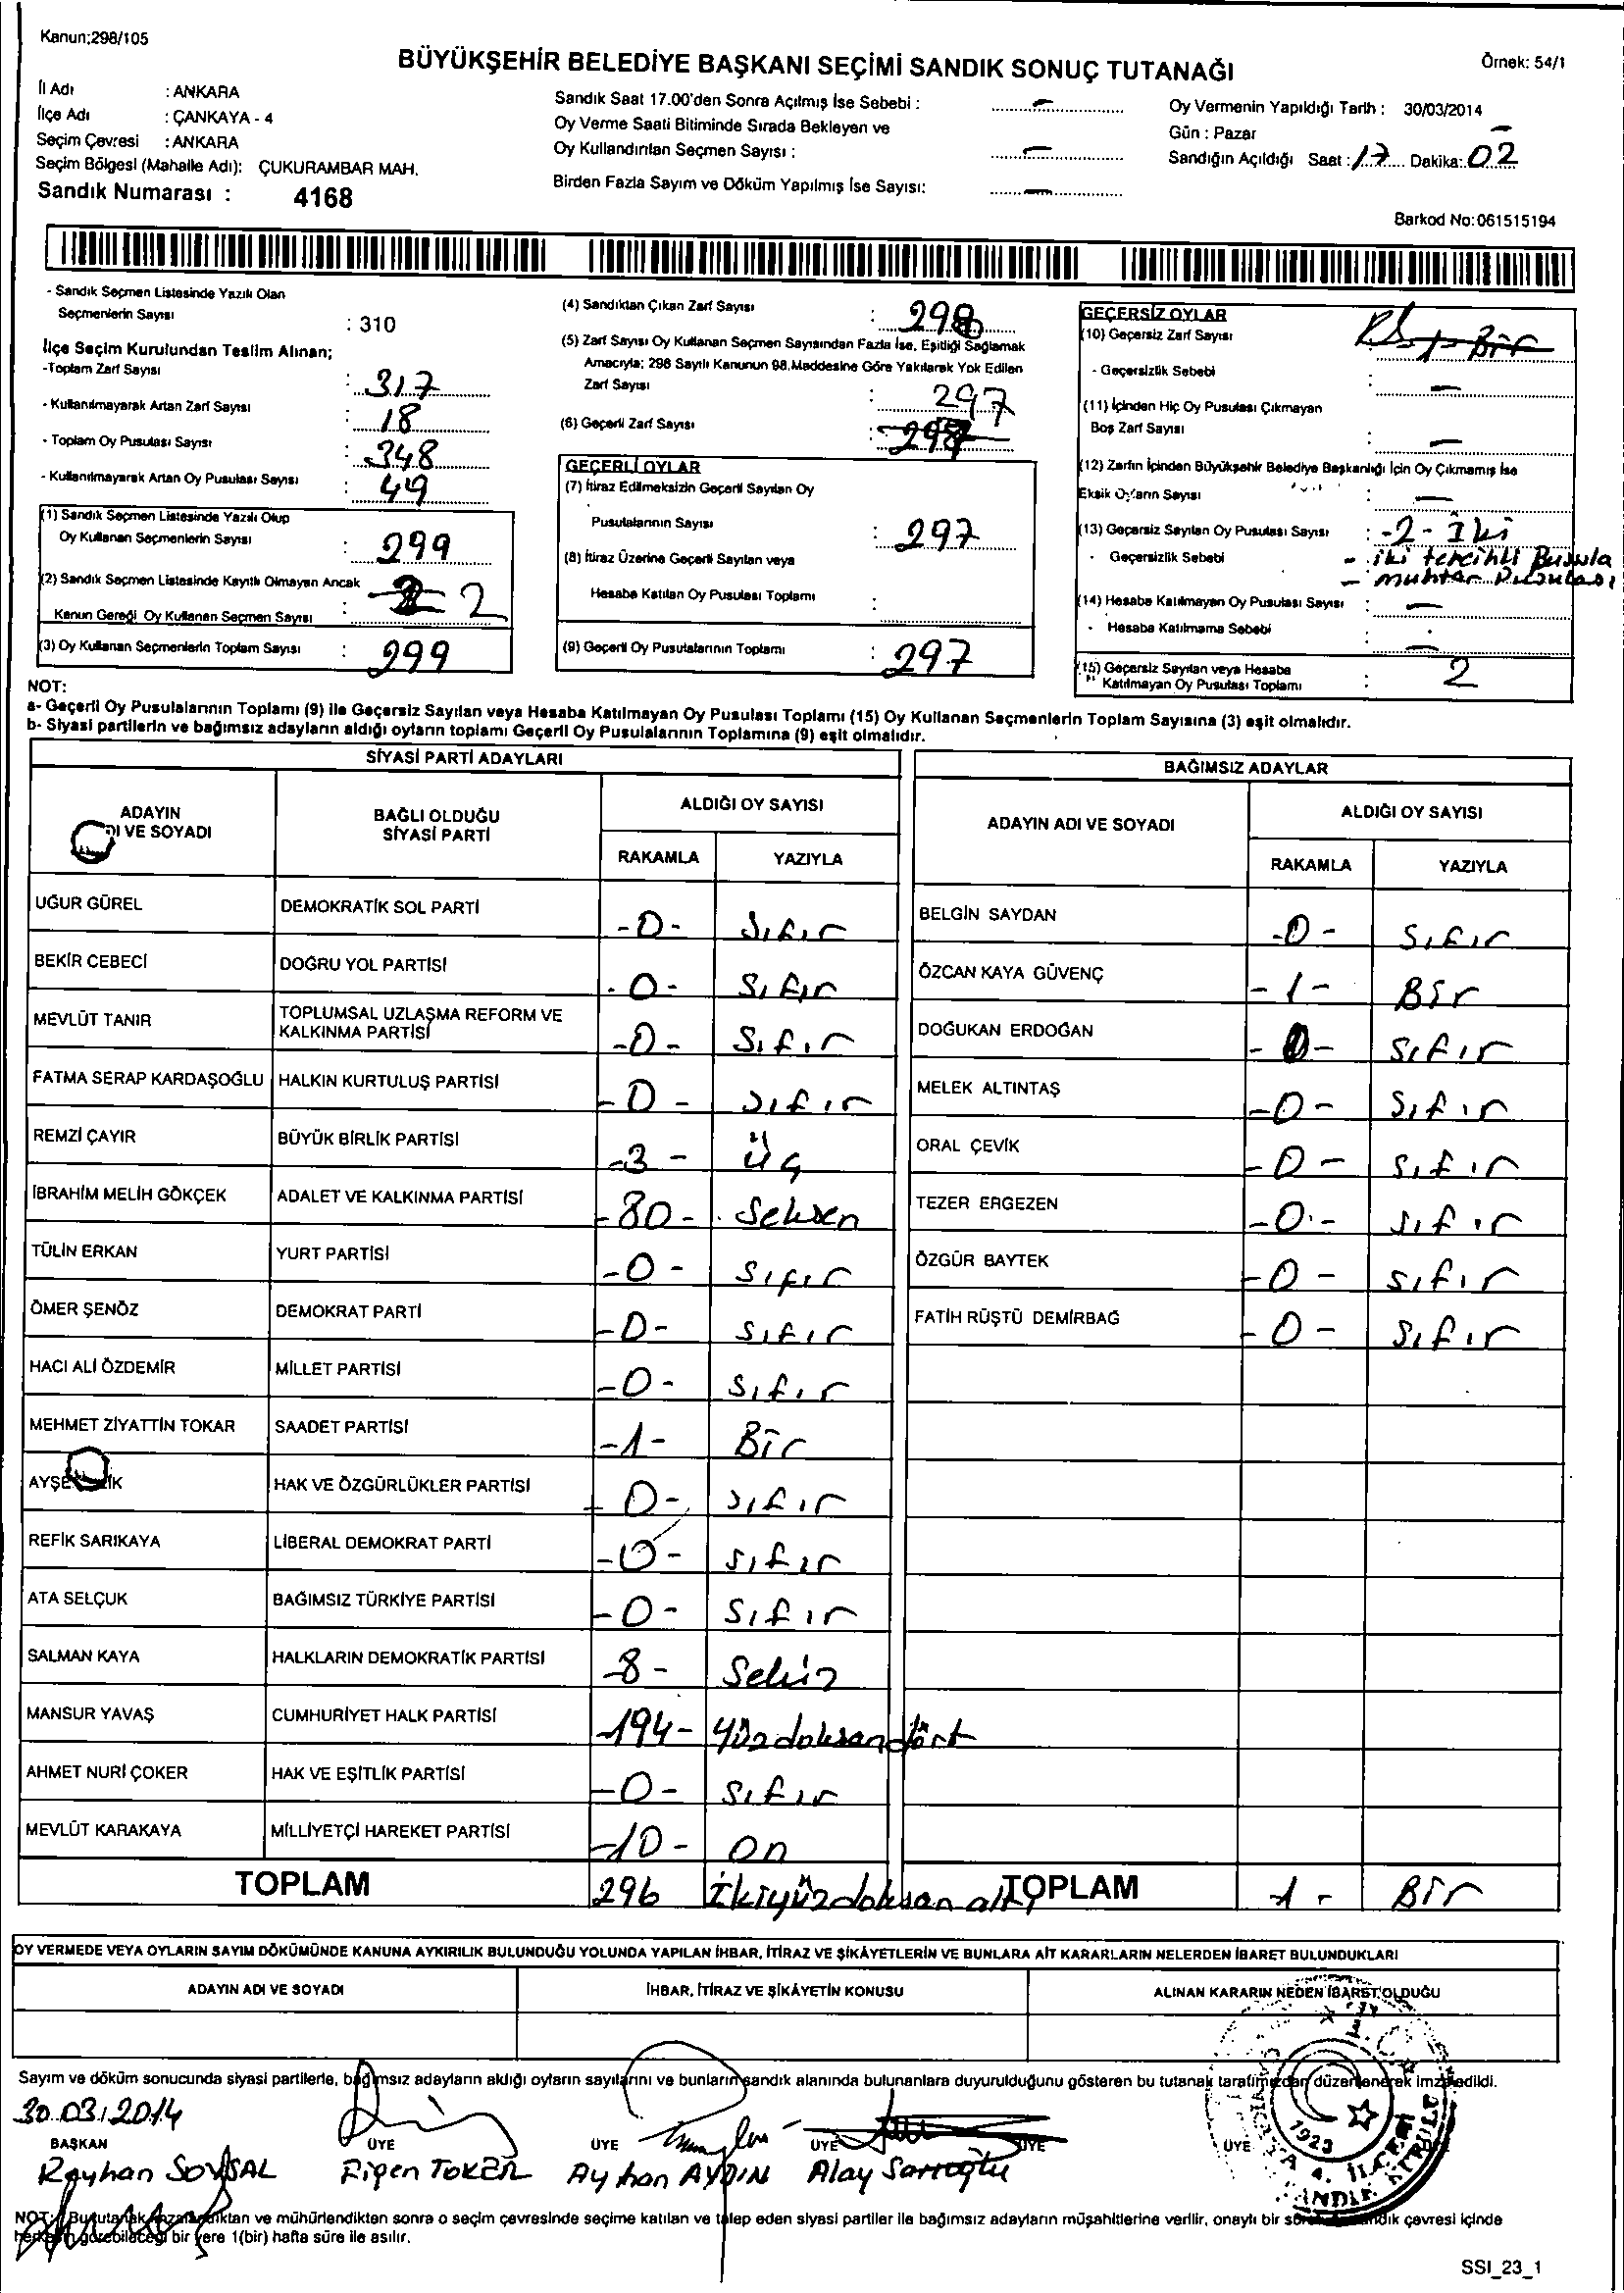 Kanun;298/105
BÜYÜKŞEHİR BELEDİYE BAŞKANI SEÇİMİ SANDIK SONUÇ TUTANAĞI
Örnek: 54/1
İl Adı : ANKARA
İlçe Adı : ÇANKAYA - 4
Seçim Çevresi : ANKARA
Seçim Bölgesi (Mahalle Adı): ÇUKURAMBAR MAH.
Sandık Numarası : 4168
Sandık Saat 17.00'den Sonra Açılmış İse Sebebi : –
Oy Verme Saati Bitiminde Sırada Bekleyen ve
Oy Kullandırılan Seçmen Sayısı : –
Birden Fazla Sayım ve Döküm Yapılmış İse Sayısı: –
Oy Vermenin Yapıldığı Tarih : 30/03/2014
Gün : Pazar
Sandığın Açıldığı Saat : 17 Dakika: 02
Barkod No:061515194
- Sandık Seçmen Listesinde Yazılı Olan
Seçmenlerin Sayısı : 310
İlçe Seçim Kurulundan Teslim Alınan;
-Toplam Zarf Sayısı : 317
- Kullanılmayarak Artan Zarf Sayısı : 18
- Toplam Oy Pusulası Sayısı : 348
- Kullanılmayarak Artan Oy Pusulası Sayısı : 49
(1) Sandık Seçmen Listesinde Yazılı Olup
Oy Kullanan Seçmenlerin Sayısı : 299
(2) Sandık Seçmen Listesinde Kayıtlı Olmayan Ancak
Kanun Gereği Oy Kullanan Seçmen Sayısı : 2
(3) Oy Kullanan Seçmenlerin Toplam Sayısı : 299
(4) Sandıktan Çıkan Zarf Sayısı : 298
(5) Zarf Sayısı Oy Kullanan Seçmen Sayısından Fazla İse, Eşitliği Sağlamak
Amacıyla; 298 Sayılı Kanunun 98.Maddesine Göre Yakılarak Yok Edilen
Zarf Sayısı :
(6) Geçerli Zarf Sayısı : 297
GEÇERLİ OYLAR
(7) İtiraz Edilmeksizin Geçerli Sayılan Oy
Pusulalarının Sayısı : 297
(8) İtiraz Üzerine Geçerli Sayılan veya
Hesaba Katılan Oy Pusulası Toplamı :
(9) Geçerli Oy Pusulalarının Toplamı : 297
GEÇERSİZ OYLAR
(10) Geçersiz Zarf Sayısı 1- Bir
- Geçersizlik Sebebi : –
(11) İçinden Hiç Oy Pusulası Çıkmayan
Boş Zarf Sayısı : –
(12) Zarfın İçinden Büyükşehir Belediye Başkanlığı İçin Oy Çıkmamış İse
Eksik Oyların Sayısı : –
(13) Geçersiz Sayılan Oy Pusulası Sayısı : -2- İki
- Geçersizlik Sebebi - iki tercihli Pusula
- muhtar Pusulası
(14) Hesaba Katılmayan Oy Pusulası Sayısı : –
- Hesaba Katılmama Sebebi : –
(15) Geçersiz Sayılan veya Hesaba
Katılmayan Oy Pusulası Toplamı : 2
NOT:
a- Geçerli Oy Pusulalarının Toplamı (9) ile Geçersiz Sayılan veya Hesaba Katılmayan Oy Pusulası Toplamı (15) Oy Kullanan Seçmenlerin Toplam Sayısına (3) eşit olmalıdır.
b- Siyasi partilerin ve bağımsız adayların aldığı oyların toplamı Geçerli Oy Pusulalarının Toplamına (9) eşit olmalıdır.
SİYASİ PARTİ ADAYLARI
ADAYIN ADI VE SOYADI BAĞLI OLDUĞU SİYASİ PARTİ ALDIĞI OY SAYISI
RAKAMLA YAZIYLA
UĞUR GÜREL DEMOKRATİK SOL PARTİ -0- Sıfır
BEKİR CEBECİ DOĞRU YOL PARTİSİ -0- Sıfır
MEVLÜT TANIR TOPLUMSAL UZLAŞMA REFORM VE KALKINMA PARTİSİ -0- Sıfır
FATMA SERAP KARDAŞOĞLU HALKIN KURTULUŞ PARTİSİ -0- Sıfır
REMZİ ÇAYIR BÜYÜK BİRLİK PARTİSİ -3- Üç
İBRAHİM MELİH GÖKÇEK ADALET VE KALKINMA PARTİSİ -80- Seksen
TÜLİN ERKAN YURT PARTİSİ -0- Sıfır
ÖMER ŞENÖZ DEMOKRAT PARTİ -0- Sıfır
HACI ALİ ÖZDEMİR MİLLET PARTİSİ -0- Sıfır
MEHMET ZİYATTİN TOKAR SAADET PARTİSİ -1- Bir
HAK VE ÖZGÜRLÜKLER PARTİSİ -0- Sıfır
REFİK SARIKAYA LİBERAL DEMOKRAT PARTİ -0- Sıfır
ATA SELÇUK BAĞIMSIZ TÜRKİYE PARTİSİ -0- Sıfır
SALMAN KAYA HALKLARIN DEMOKRATİK PARTİSİ -8- Sekiz
MANSUR YAVAŞ CUMHURİYET HALK PARTİSİ -194- Yüzdoksandört
AHMET NURİ ÇOKER HAK VE EŞİTLİK PARTİSİ -0- Sıfır
MEVLÜT KARAKAYA MİLLİYETÇİ HAREKET PARTİSİ -10- On
TOPLAM 296 İkiyüzdoksan altı
BAĞIMSIZ ADAYLAR
ADAYIN ADI VE SOYADI ALDIĞI OY SAYISI
RAKAMLA YAZIYLA
BELGİN SAYDAN -0- Sıfır
ÖZCAN KAYA GÜVENÇ -1- Bir
DOĞUKAN ERDOĞAN -0- Sıfır
MELEK ALTINTAŞ -0- Sıfır
ORAL ÇEVİK -0- Sıfır
TEZER ERGEZEN -0- Sıfır
ÖZGÜR BAYTEK -0- Sıfır
FATİH RÜŞTÜ DEMİRBAĞ -0- Sıfır
TOPLAM -1- Bir
OY VERMEDE VEYA OYLARIN SAYIM DÖKÜMÜNDE KANUNA AYKIRILIK BULUNDUĞU YOLUNDA YAPILAN İHBAR, İTİRAZ VE ŞİKÂYETLERİN VE BUNLARA AİT KARARLARIN NELERDEN İBARET BULUNDUKLARI
ADAYIN ADI VE SOYADI İHBAR, İTİRAZ VE ŞİKÂYETİN KONUSU ALINAN KARARIN NEDEN İBARET OLDUĞU
Sayım ve döküm sonucunda siyasi partilerle, bağımsız adayların aldığı oyların sayılarını ve bunların sandık alanında bulunanlara duyurulduğunu gösteren bu tutanak tarafımızdan düzenlenerek imza edildi.
30.03.2014
BAŞKAN ÜYE ÜYE ÜYE ÜYE ÜYE
Reyhan SOYSAL TOKER Ayhan AYDIN Alay Sarıoğlu
1923
NOT: Bu tutanak imzalandıktan ve mühürlendikten sonra o seçim çevresinde seçime katılan ve talep eden siyasi partiler ile bağımsız adayların müşahitlerine verilir, onaylı bir sandık çevresi içinde
herkesin görebileceği bir yere 1(bir) hafta süre ile asılır.
SSI_23_1